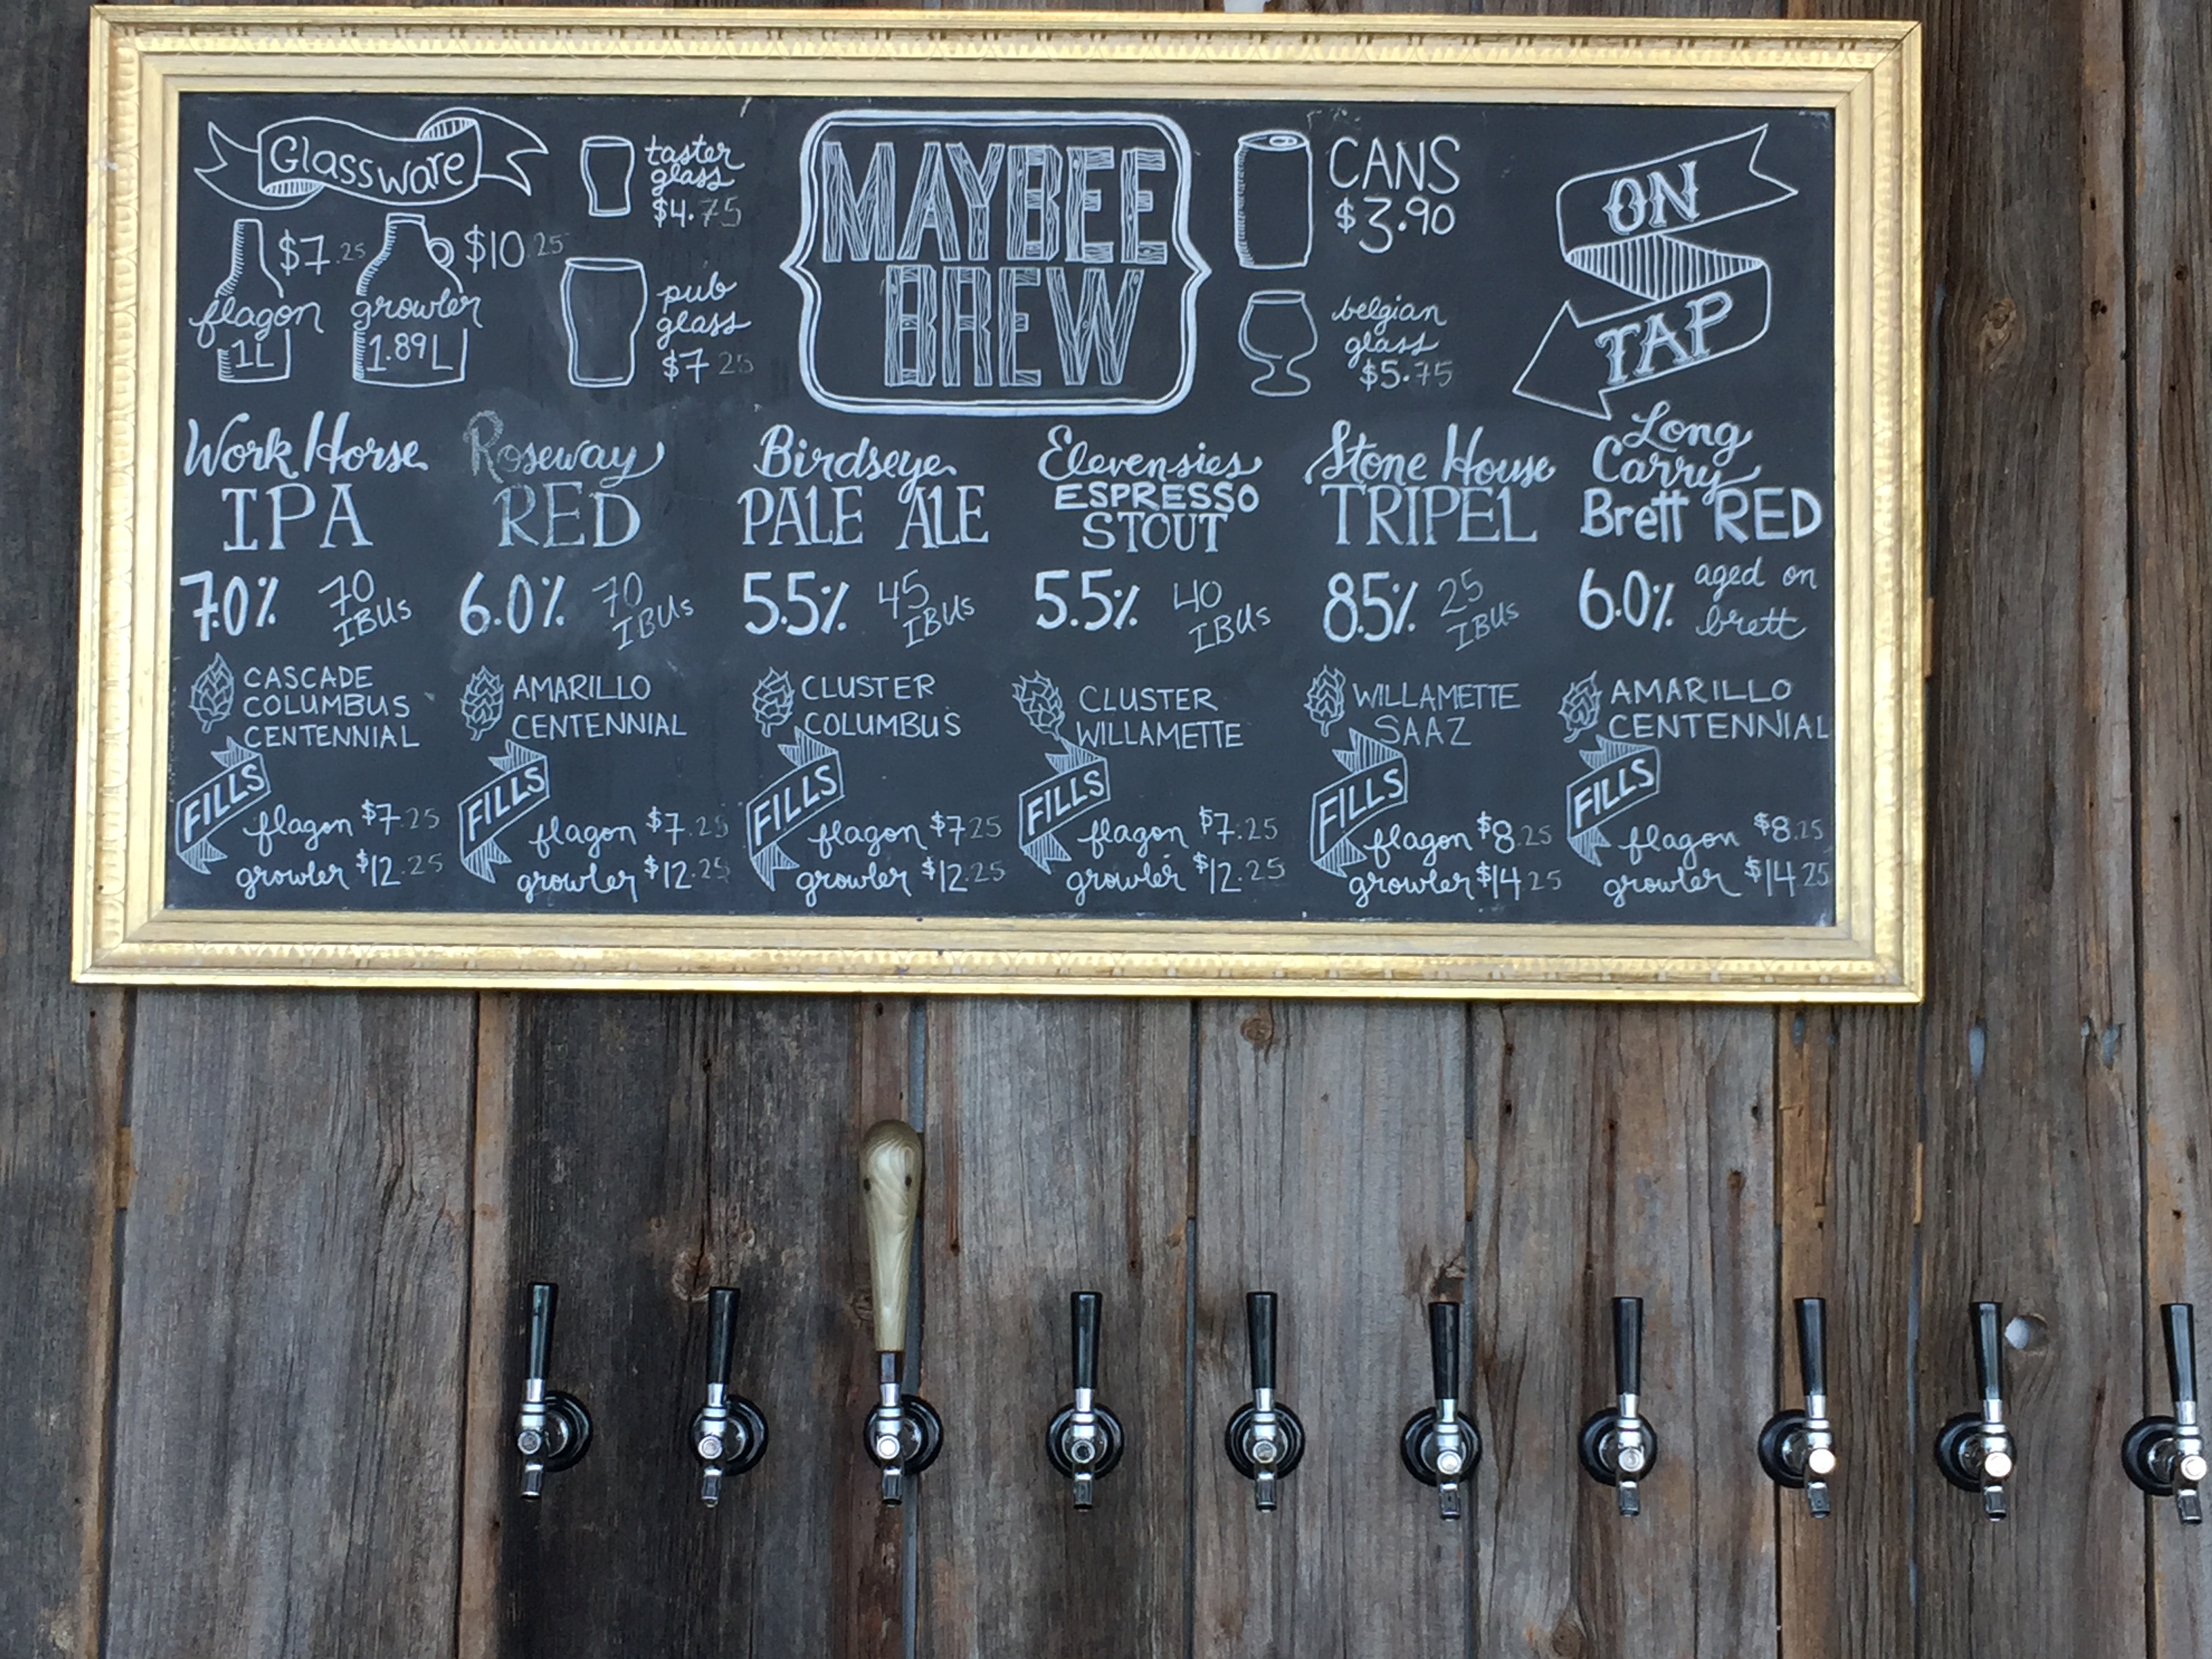 Glassware
$7.25
flagon
1L
$10.25
growler
1.89L
taster
glass
$4.75
pub
glass
$7 25
MAYBEE
BREW
CANS
$3.90
belgian
glass
$5.75
ON
TAP
Work Horse
IPA
7.0%
70
IBUs
CASCADE
COLUMBUS
CENTENNIAL
FILLS
flagon $7.25
growler $12.25
Roseway
RED
6.0%
70
IBUs
AMARILLO
CENTENNIAL
FILLS
flagon $7.25
growler $12.25
Birdseye
PALE ALE
5.5%
45
IBUs
CLUSTER
COLUMBUS
FILLS
flagon $7 25
growler $12.25
Elevensies
ESPRESSO
STOUT
5.5%
40
IBUs
CLUSTER
WILLAMETTE
FILLS
flagon $7.25
growler $12.25
Stone House
TRIPEL
8.5%
25
IBUs
WILLAMETTE
SAAZ
FILLS
flagon $8.25
growler $14.25
Long
Carry
Brett RED
6.0%
aged on
brett
AMARILLO
CENTENNIAL
FILLS
flagon $8.25
growler $14 25